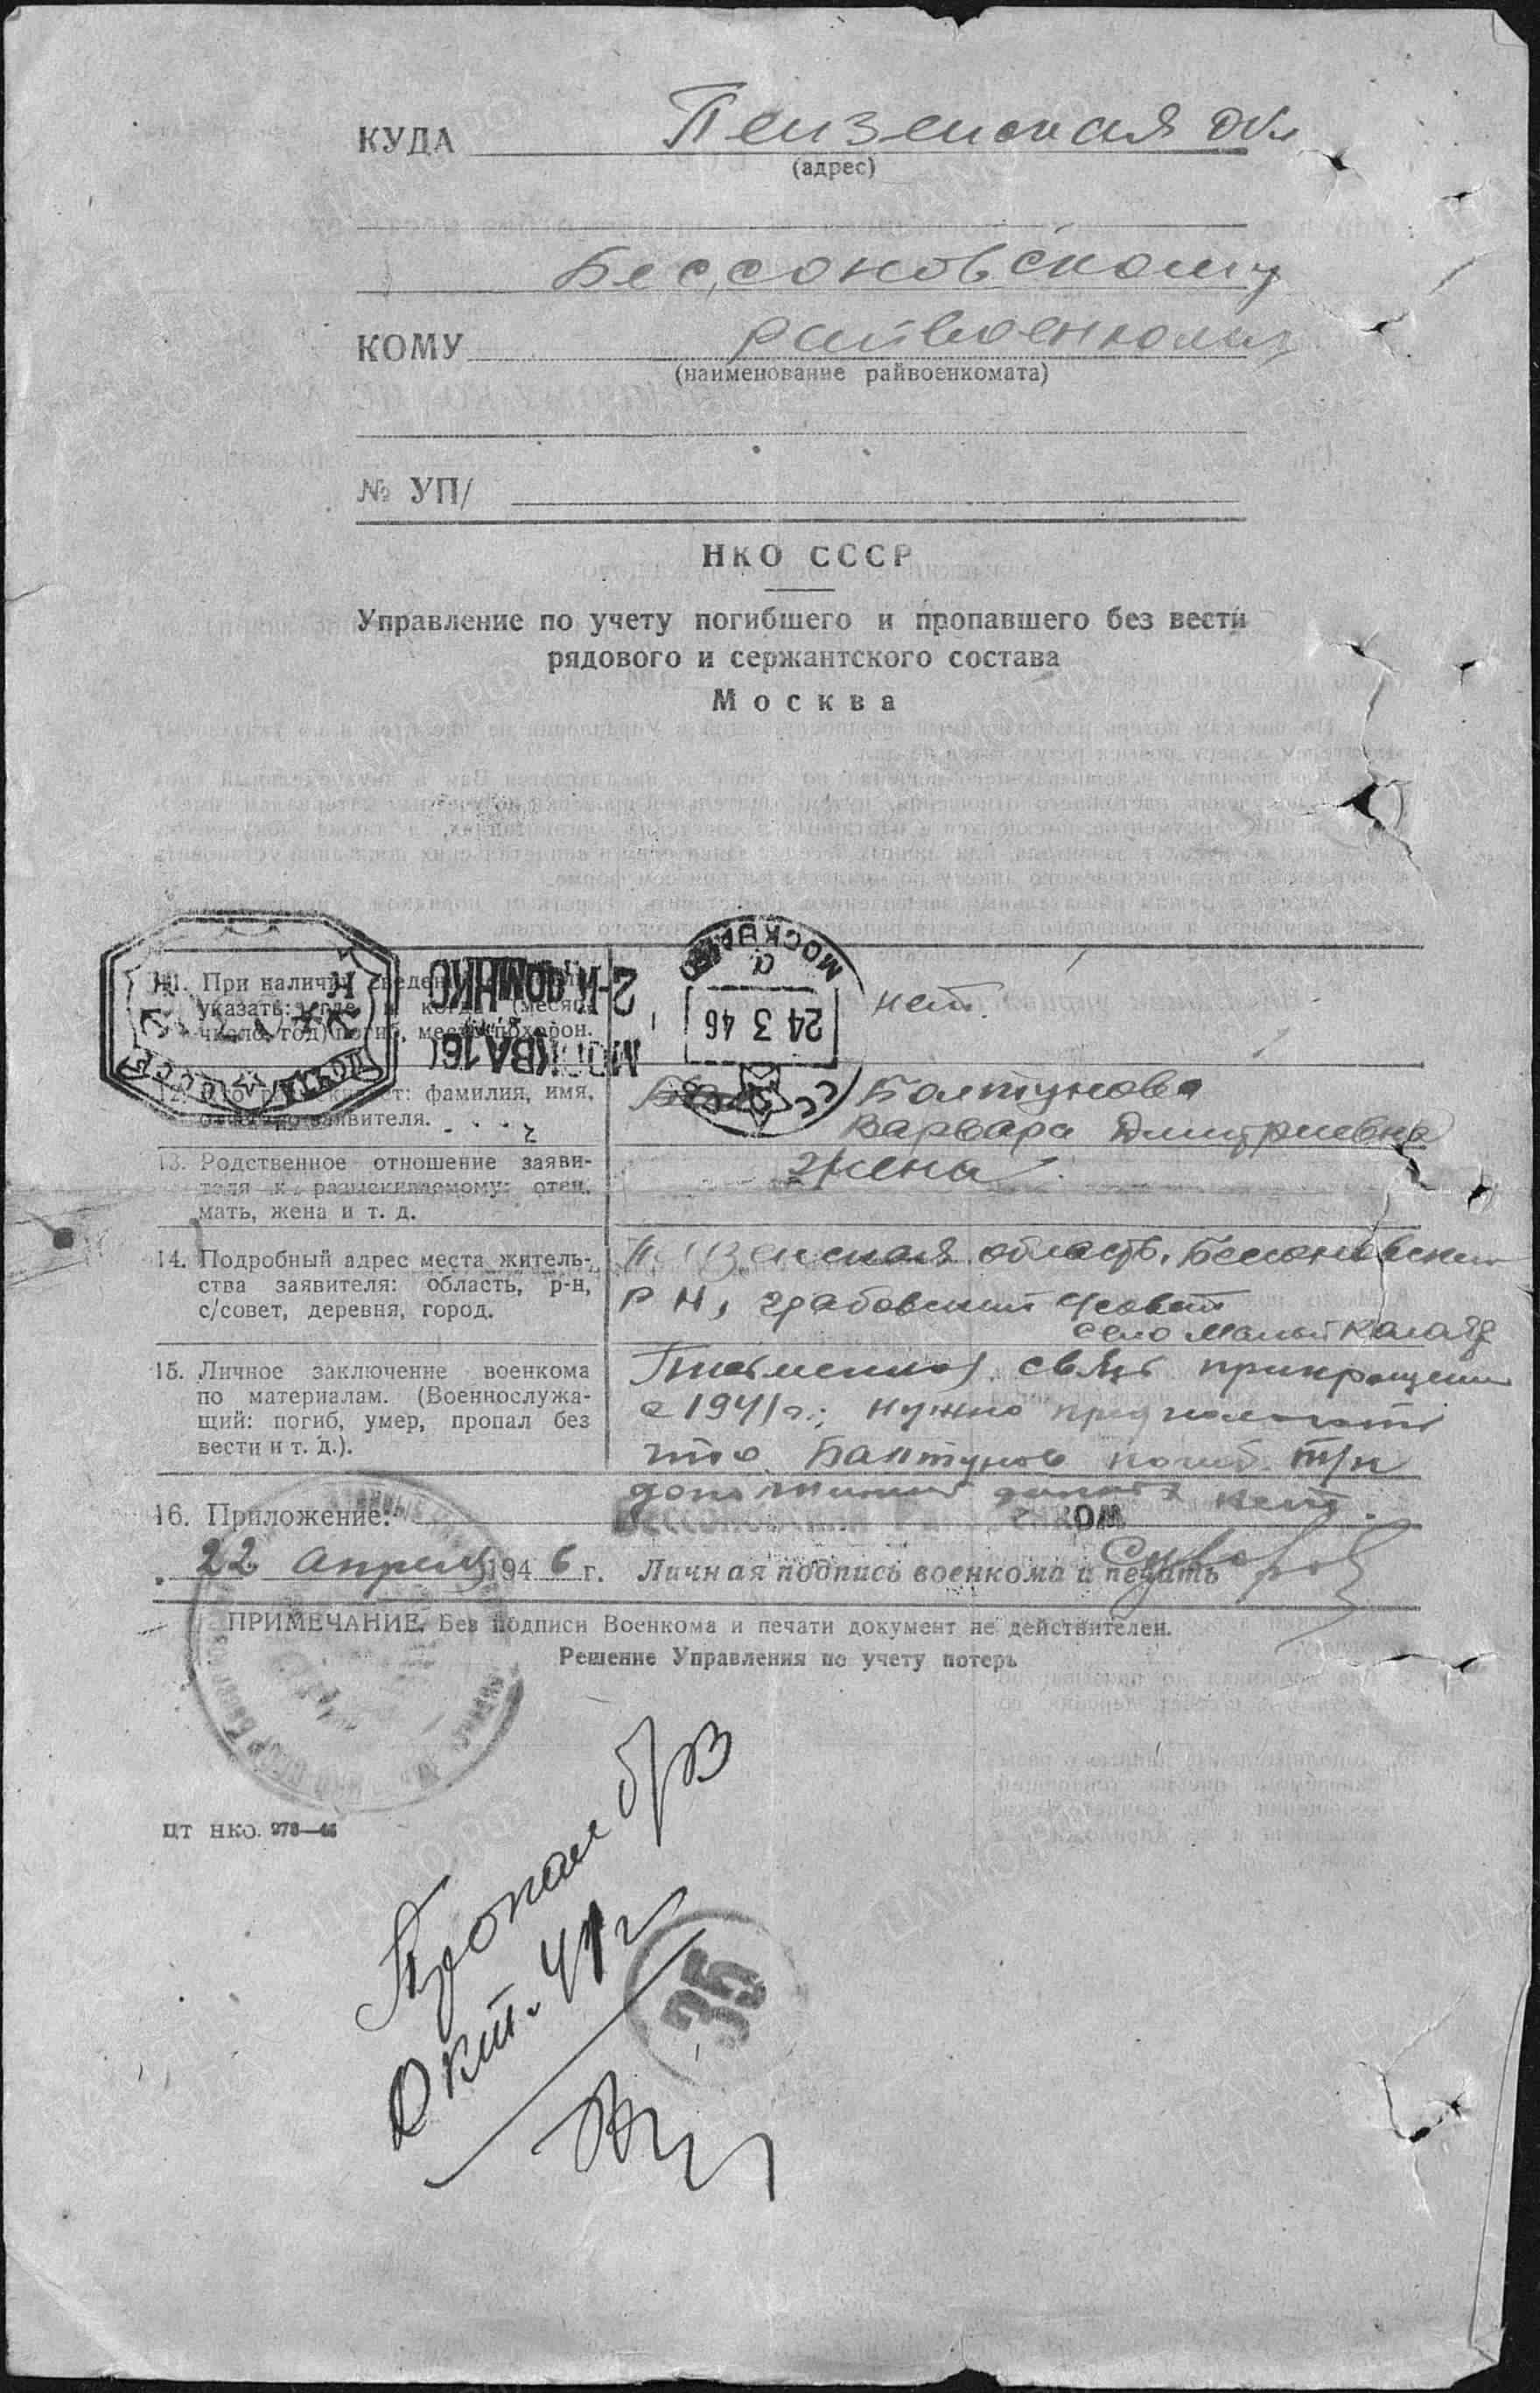 КУДА Пензенская обл
(адрес)
Бессоновскому
КОМУ райвоенкому
(наименование райвоенкомата)
№ УП/
НКО СССР
Управление по учету погибшего и пропавшего без вести
рядового и сержантского состава
Москва
11. При наличии сведений
указать: где и когда (месяц,
число, год) погиб, место похорон.
нет.
МОСКВА
а
24 3 46
СССР
2-й ДОМ НКО
МОСКВА 19
ПОЧТА СССР
12. Кто разыскивает: фамилия, имя,
отчество заявителя.
Болтунова
Варвара Дмитриевна
13. Родственное отношение заяви-
теля к разыскиваемому: отец,
мать, жена и т. д.
Жена
14. Подробный адрес места житель-
ства заявителя: область, р-н,
с/совет, деревня, город.
Пензенская область, Бессоновский
р н, Грабовский с/совет
село Малый Колояр
15. Личное заключение военкома
по материалам. (Военнослужа-
щий: погиб, умер, пропал без
вести и т. д.).
Письменная связь прикращена
с 1941 г.; нужно предпологать
что Балтунов погиб т/к
данных нет.
16. Приложение:
22 апреля 1946 г. Личная подпись военкома и печать
ПРИМЕЧАНИЕ. Без подписи Военкома и печати документ не действителен.
Решение Управления по учету потерь
ЦТ НКО. 273—46
Пропал б/в
Окт. 41 г
35